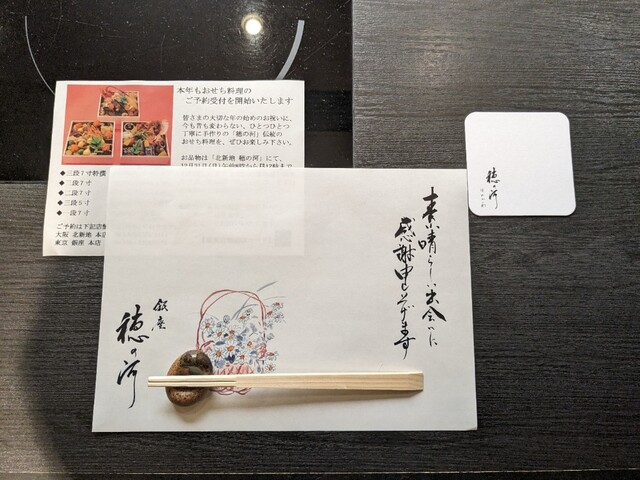 本年もおせち料理の
ご予約受付を開始いたします
皆さまの大切な年の始めのお祝いに、
今も昔も変わらない、ひとつひとつ
丁寧に手作りの「穂の河」伝統の
おせち料理を、ぜひお楽しみ下さい。
お品物は「北新地 穂の河」にて、
◆三段7寸特撰
◆三段7寸
◆二段7寸
◆三段5寸
◆一段7寸
ご予約は下記店舗
大阪 北新地 本店
東京 銀座 本店
素晴らしい出会いに
感謝申し上げます
銀座
穂の河
穂の河